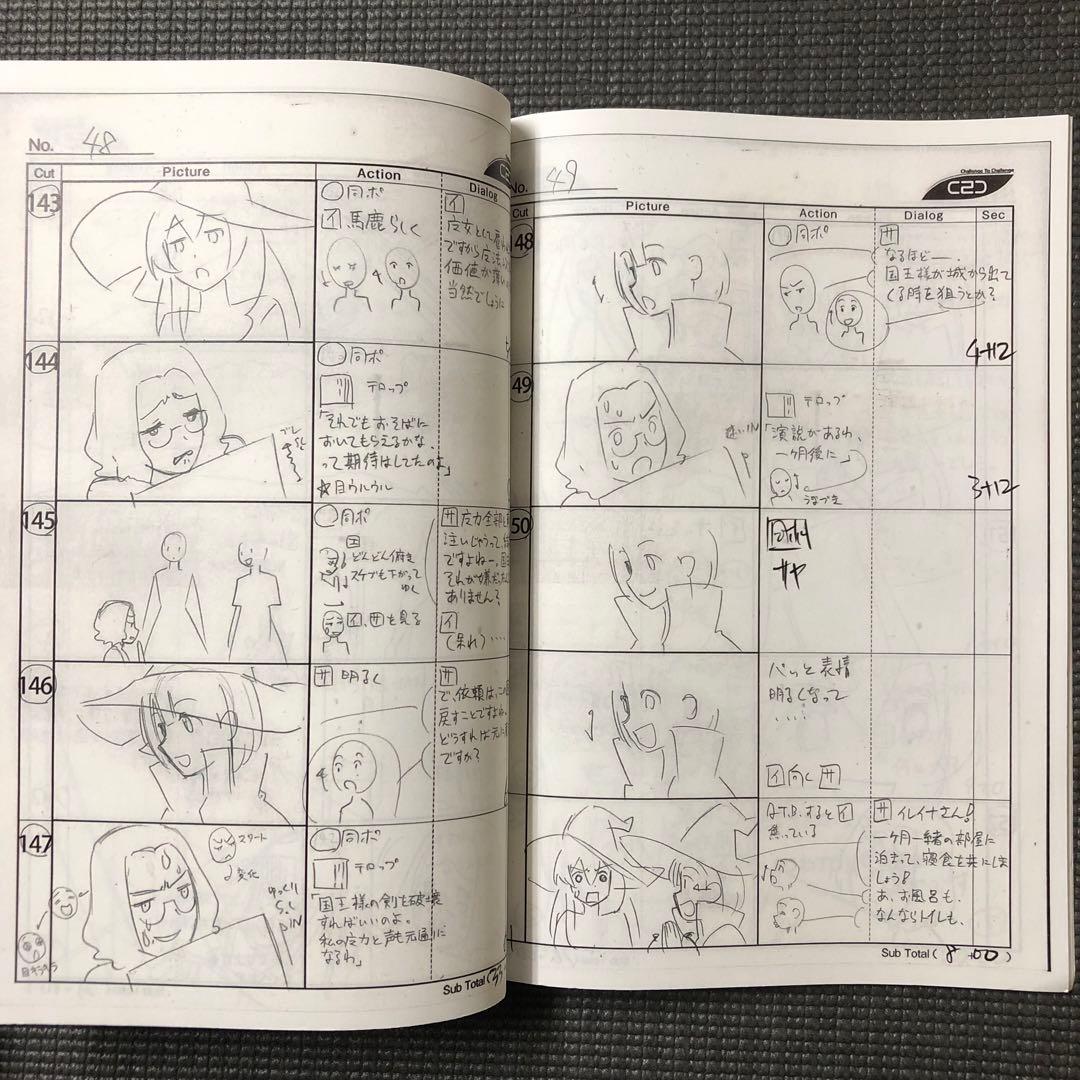 No. 48
Cut Picture Action Dialog
143
同ポ
イ 馬鹿らしく
イ
ですから
価値が
当然でしょうに
144
同ポ
テロップ
「それでもおそばに
おいてもらえるかな、
って期待はしてたのよ」
☆目ウルウル
145
同ポ
国
どんどん俯き
スケブも下がって
ゆく
イ、サを見る
サ
注いじゃうって、
ですよねー。
ありません?
イ
(呆れ)‥‥
146
サ 明るく
サ
で、依頼は、
戻すことですよね、
どうすれば元に
ですか?
147
スタート
変化
ゆっくり
同ポ
テロップ
「国王様の剣を破壊
すればいいのよ。
私の
と声も元通りに
なるわ」
Sub Total(
No. 49
Challenge To Challenge
C2C
Cut Picture Action Dialog Sec
48
同ポ
サ
なるほどー、
国王様が城から出て
くる時を狙うとか?
4+12
49
テロップ
「演説があるわ、
一ヶ月後に」
うなづき
3+12
50
パッと表情
明るくなって
‥‥
イ向くサ
Q.T.B.すると イ
焦っている
サ イレイナさん!
一ヶ月一緒の部屋に
泊まって、寝食を共にしま
しょう!
あ、お風呂も、
なんならトイレも、
Sub Total( 8 +00 )